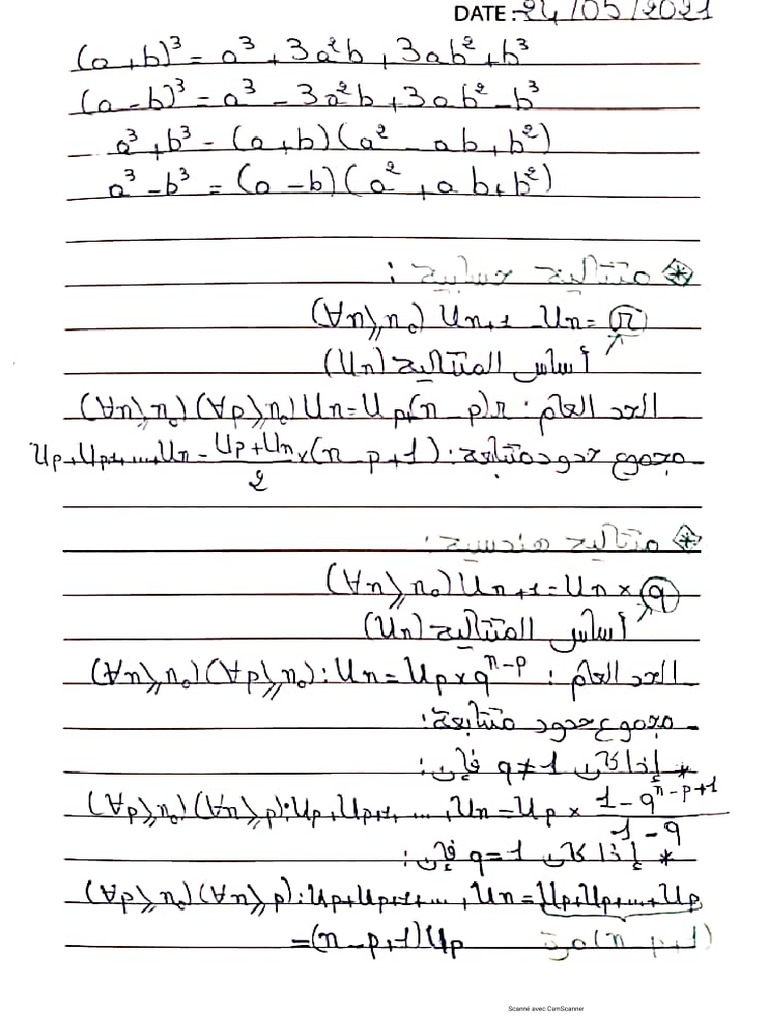 DATE: 24/05/2021
(a+b)³ = a³ + 3a²b + 3ab² + b³
(a-b)³ = a³ - 3a²b + 3ab² - b³
a³ + b³ = (a+b)(a² - ab + b²)
a³ - b³ = (a-b)(a² + ab + b²)
متتالية حسابية :
(∀n⩾n₀) Uₙ₊₁ - Uₙ = r
أساس المتتالية (Uₙ)
الحد العام : (∀n⩾n₀)(∀p⩾n₀) Uₙ = Uₚ + (n-p)r
مجموع حدود متتابعة : Uₚ + Uₚ₊₁ + ... + Uₙ = (Uₚ + Uₙ)/2 × (n-p+1)
متتالية هندسية :
(∀n⩾n₀) Uₙ₊₁ = Uₙ × q
أساس المتتالية (Uₙ)
الحد العام : (∀n⩾n₀)(∀p⩾n₀) : Uₙ = Uₚ × qⁿ⁻ᵖ
مجموع حدود متتابعة :
* إذا كان q ≠ 1 فإن :
(∀p⩾n₀)(∀n⩾p) : Uₚ + Uₚ₊₁ + ... + Uₙ = Uₚ × (1 - qⁿ⁻ᵖ⁺¹)/(1 - q)
* إذا كان q = 1 فإن :
(∀p⩾n₀)(∀n⩾p) : Uₚ + Uₚ₊₁ + ... + Uₙ = Uₚ + Uₚ + ... + Uₚ
(n-p+1) مرة
= (n-p+1)Uₚ
Scanné avec CamScanner